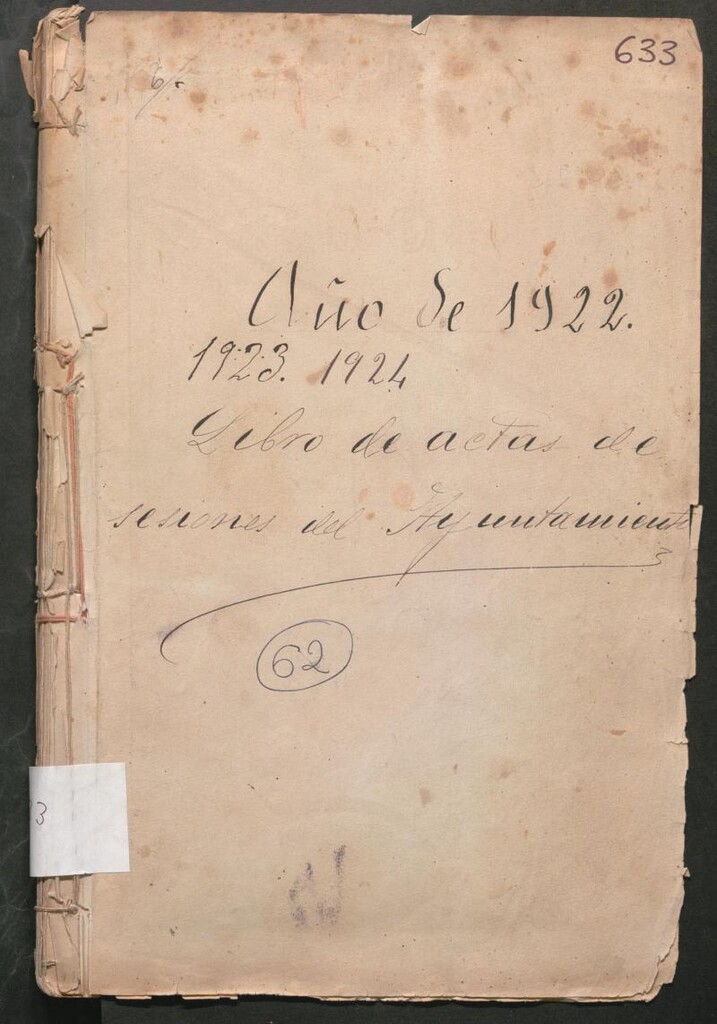 633
Año de 1922.
1923. 1924
Libro de actas de
sesiones del Ayuntamiento
62
3